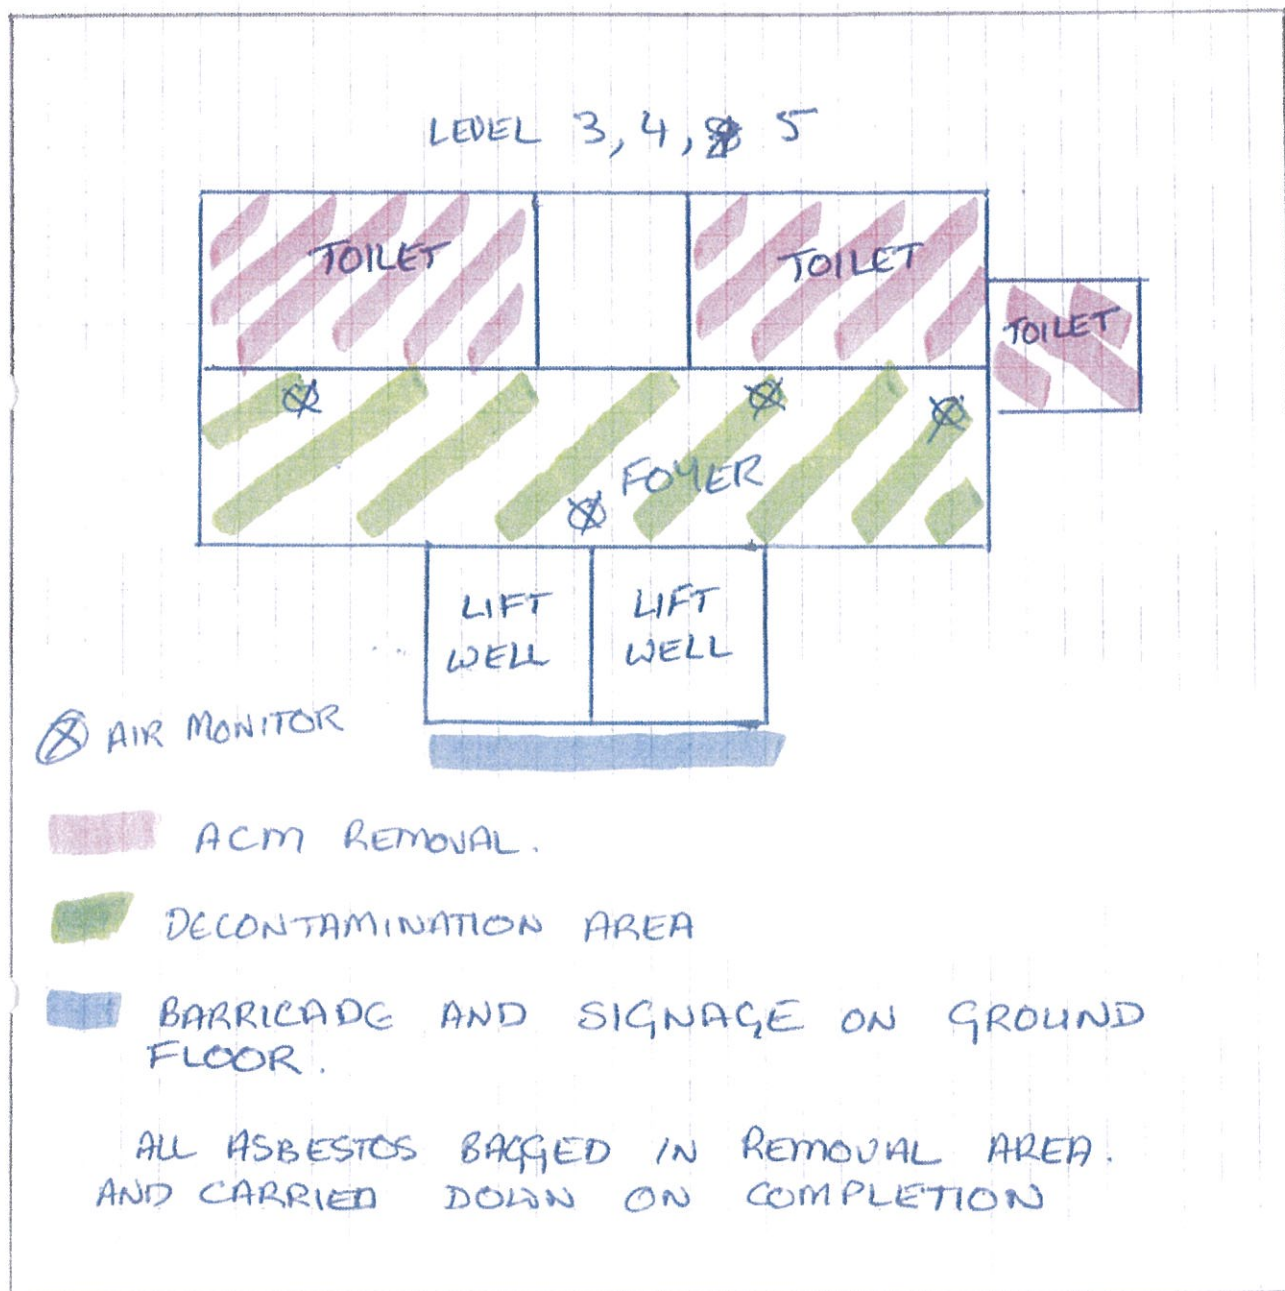 LEVEL 3, 4, 5
TOILET
TOILET
TOILET
FOYER
LIFT
WELL
LIFT
WELL
AIR MONITOR
ACM REMOVAL.
DECONTAMINATION AREA
BARRICADE AND SIGNAGE ON GROUND
FLOOR.
ALL ASBESTOS BAGGED IN REMOVAL AREA.
AND CARRIED DOWN ON COMPLETION